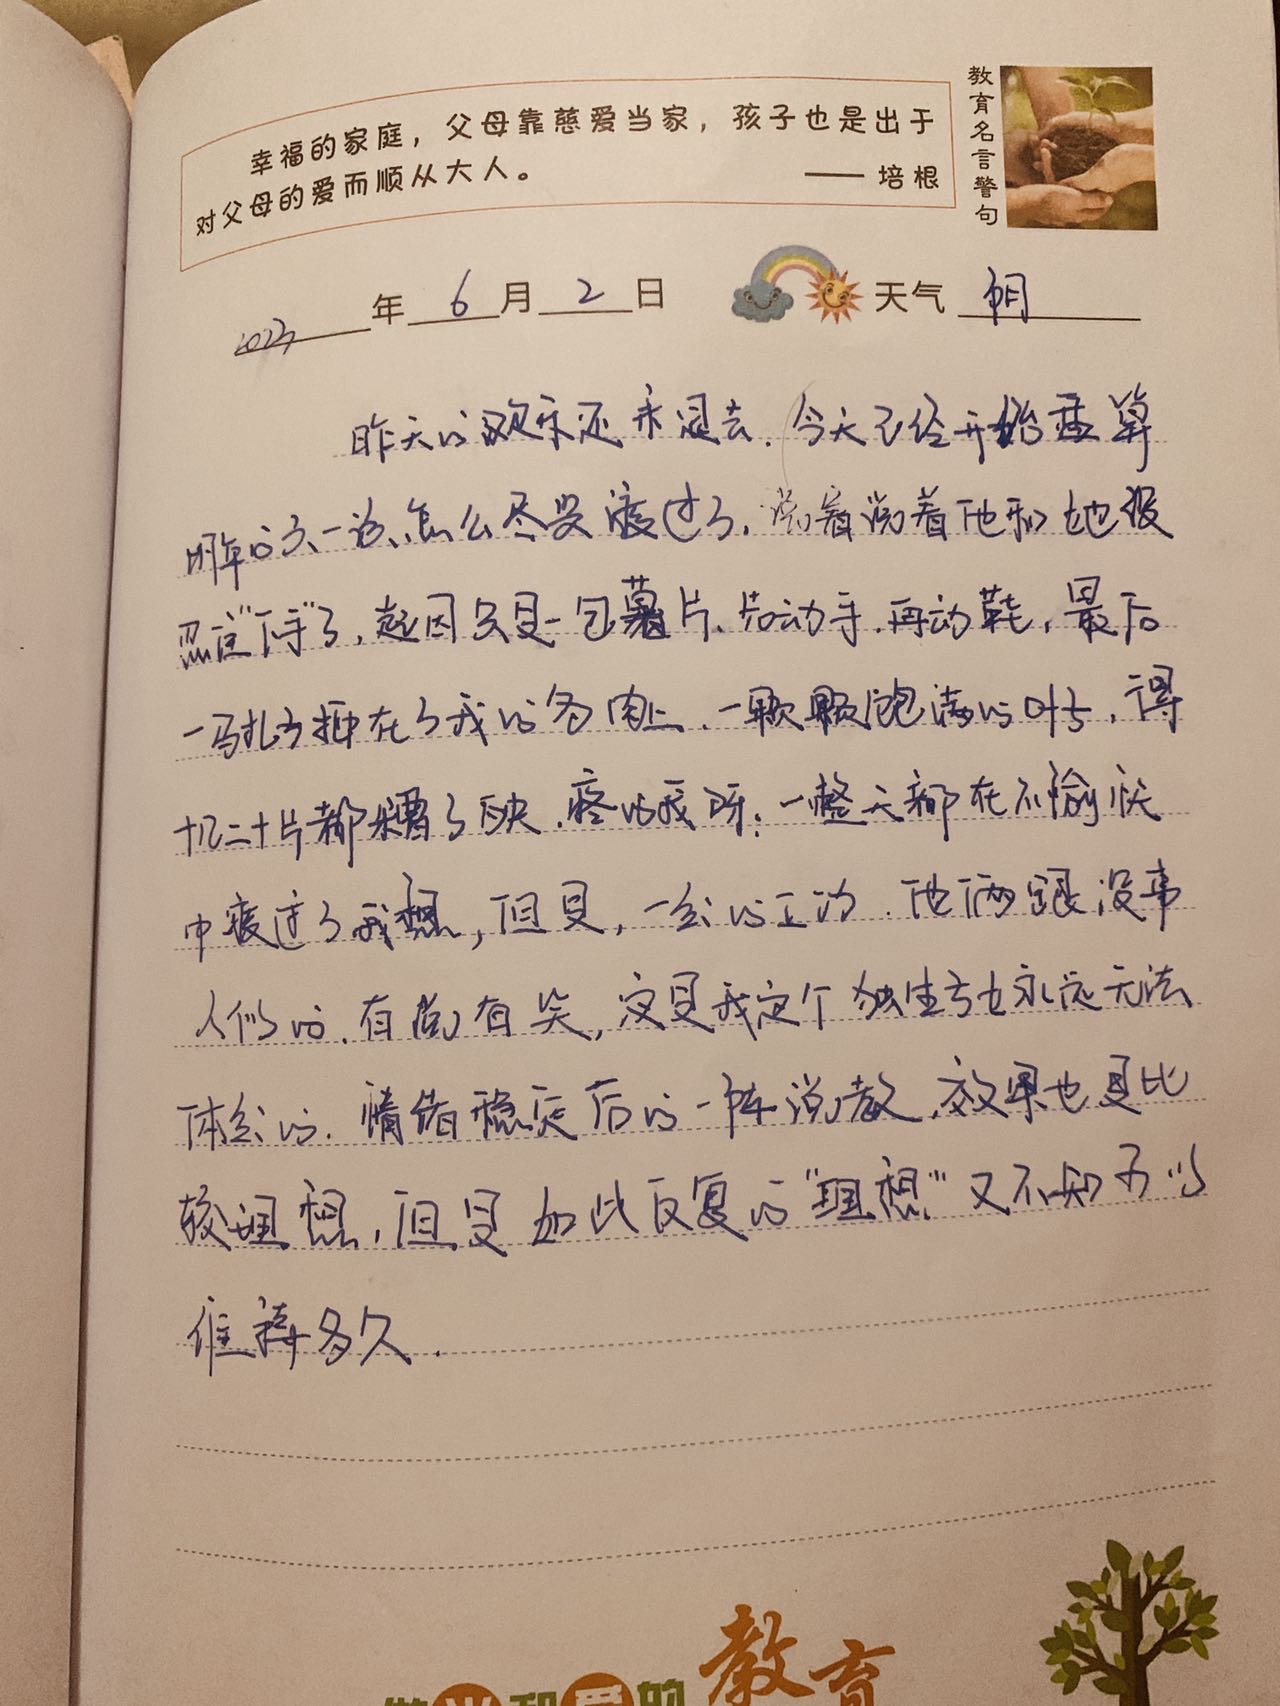 教育名言警句
幸福的家庭，父母靠慈爱当家，孩子也是出于
对父母的爱而顺从大人。 —— 培根
2023年 6月 2日 天气 晴
昨天的欢乐还未退去，今天已经开始盘算
明年的六一该怎么尽兴渡过了，说着说着他和她没
忍住“下手”了，起因只是一包薯片，先动手，再动鞋，最后
一马扎子抻在了我的多肉上，一颗颗饱满的叶子，得
有二十片都糟了殃，疼的我呀，一整天都在不愉快
中度过了我想，但是，一会的工功，他俩跟没事
人似的，有说有笑，这是我这个独生子女永远无法
体会的，情绪稳定后的一阵说教，效果也是比
较理想，但是如此反复的“理想”又不知可以
维持多久．
教育
和爱的